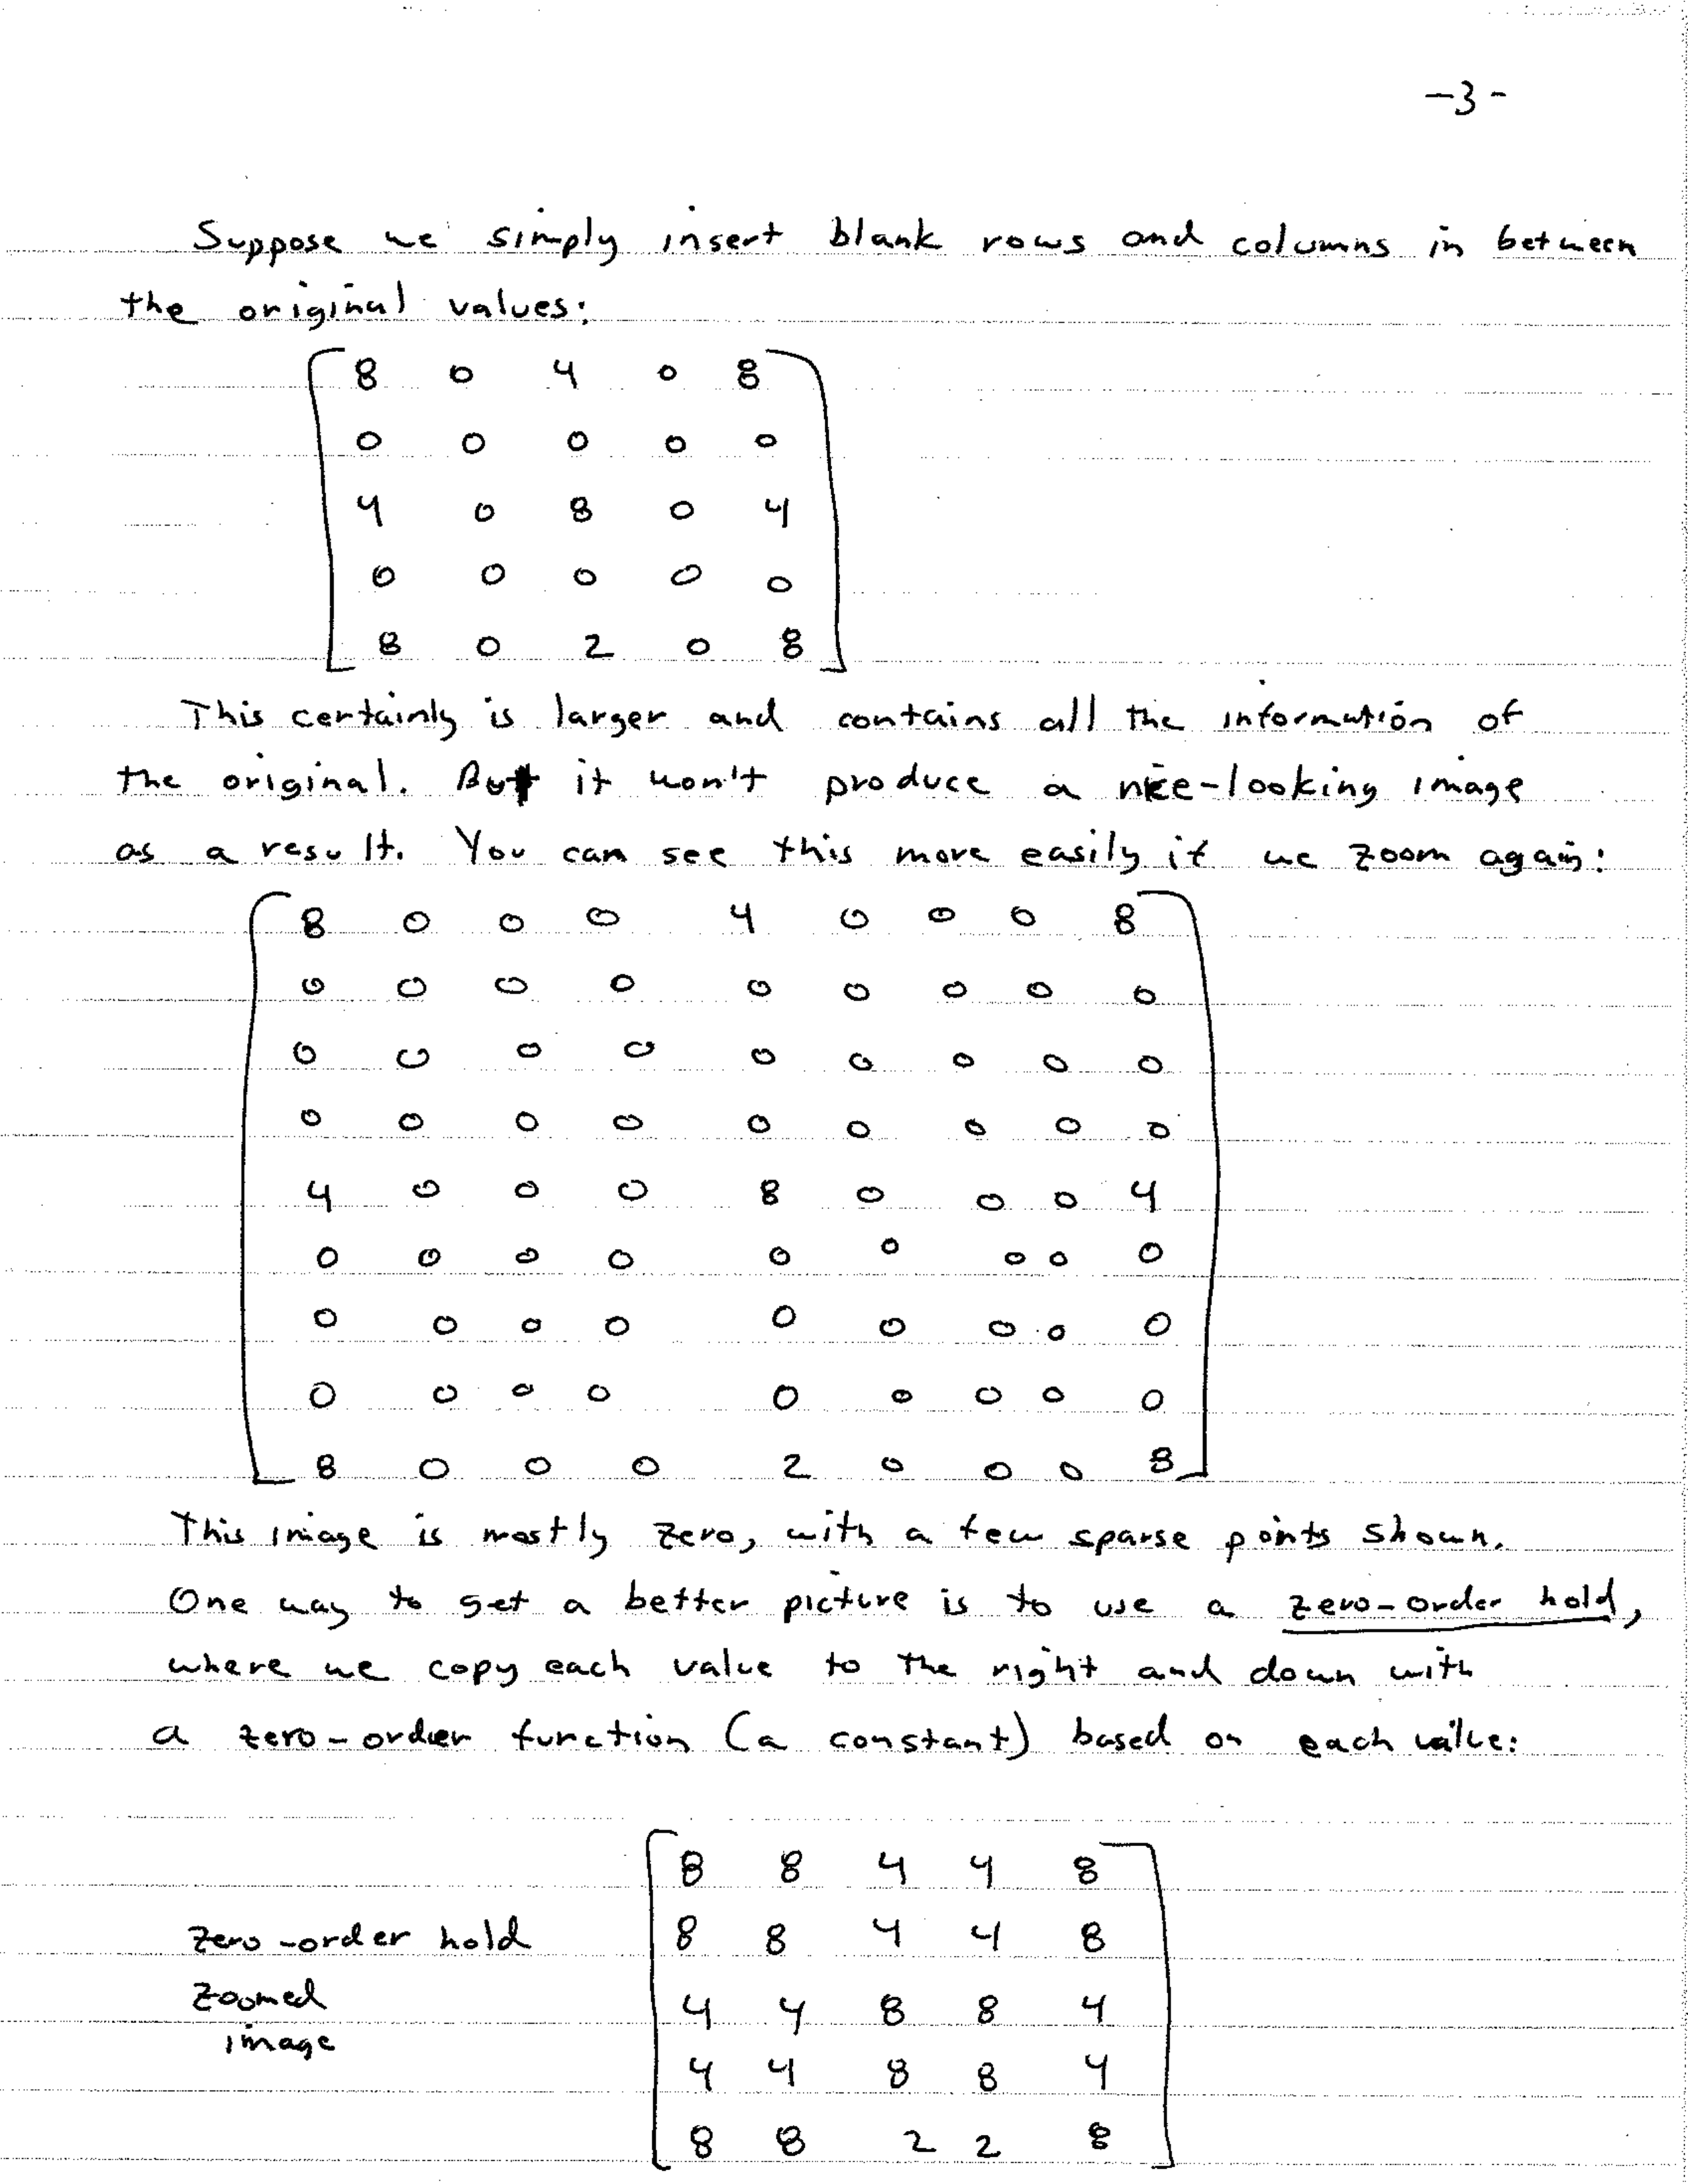 -3-
Suppose we simply insert blank rows and columns in between
the original values:
8 0 4 0 8
0 0 0 0 0
4 0 8 0 4
0 0 0 0 0
8 0 2 0 8
This certainly is larger and contains all the information of
the original. But it won't produce a nice-looking image
as a result. You can see this more easily if we zoom again:
8 0 0 0 4 0 0 0 8
0 0 0 0 0 0 0 0 0
0 0 0 0 0 0 0 0 0
0 0 0 0 0 0 0 0 0
4 0 0 0 8 0 0 0 4
0 0 0 0 0 0 0 0 0
0 0 0 0 0 0 0 0 0
0 0 0 0 0 0 0 0 0
8 0 0 0 2 0 0 0 8
This image is mostly zero, with a few sparse points shown.
One way to get a better picture is to use a zero-order hold,
where we copy each value to the right and down with
a zero-order function (a constant) based on each value:
8 8 4 4 8
zero-order hold 8 8 4 4 8
zoomed 4 4 8 8 4
image
4 4 8 8 4
8 8 2 2 8